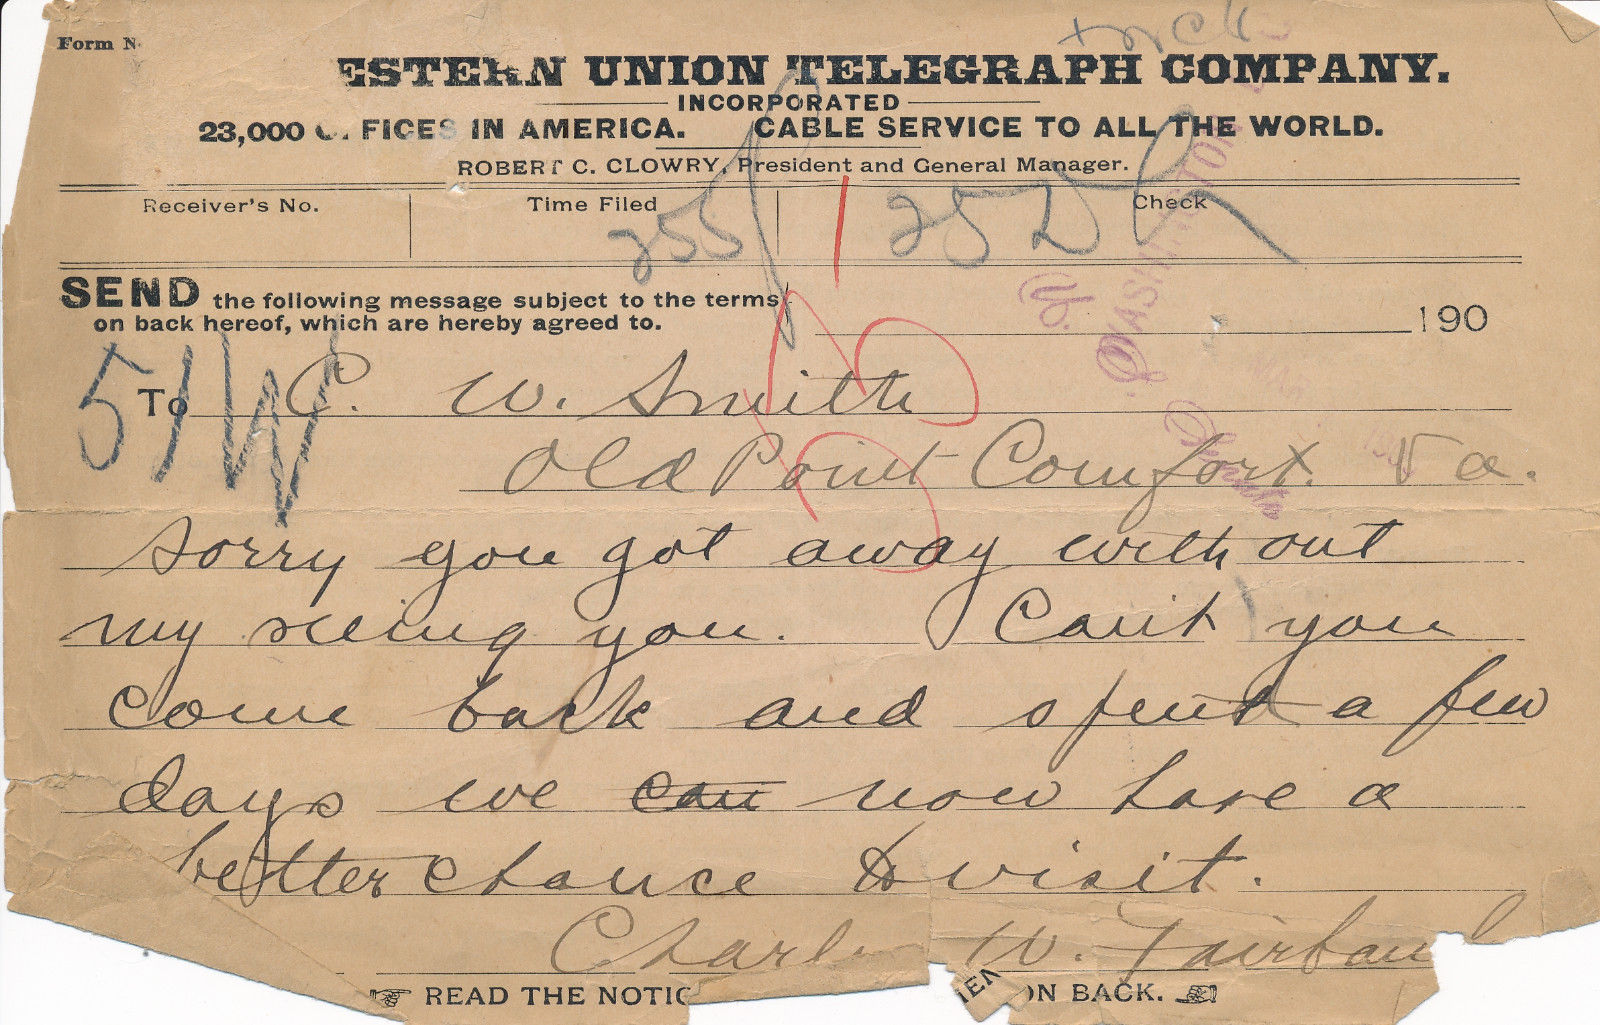 Form N
ESTERN UNION TELEGRAPH COMPANY.
INCORPORATED
23,000 OFFICES IN AMERICA. CABLE SERVICE TO ALL THE WORLD.
ROBERT C. CLOWRY, President and General Manager.
Receiver's No. Time Filed Check
255P 25 DR
SEND the following message subject to the terms
on back hereof, which are hereby agreed to.
190
WASHINGTON
51W
To C. W. Smith
Old Point Comfort. Va.
Sorry you got away without
my seeing you. Can't you
come back and spend a few
days we can now have a
better chance to visit.
Charles W. Fairban
READ THE NOTIC
ON BACK.